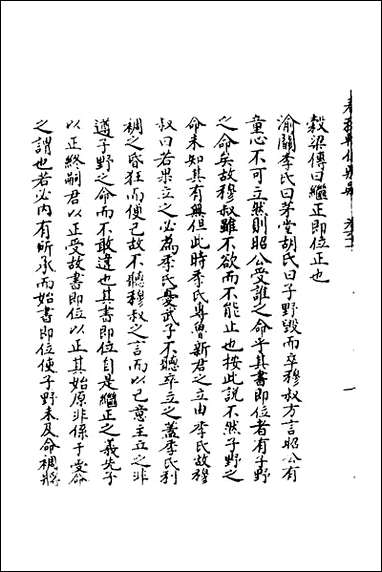 穀梁傳曰繼正即位正也
渝關李氏曰茅堂胡氏曰子野毀而卒穆叔方言昭公有
童心不可立然則昭公受誰之命乎其書即位者有子野
之命矣故穆叔雖不欲而不能止也按此說不然子野之
命未知其有無但此時季氏專魯新君之立由季氏故穆
叔曰若果立之必為季氏憂武子不聽卒立之蓋季氏利
裯之昏狂而便己故不聽穆叔之言而以己意主立之非
遵子野之命而不敢違也其書即位自是繼正之義先子
以正終嗣君以正受故書即位以正其始原非係于受命
之謂也若必內有所承而始書即位使子野未及命裯將